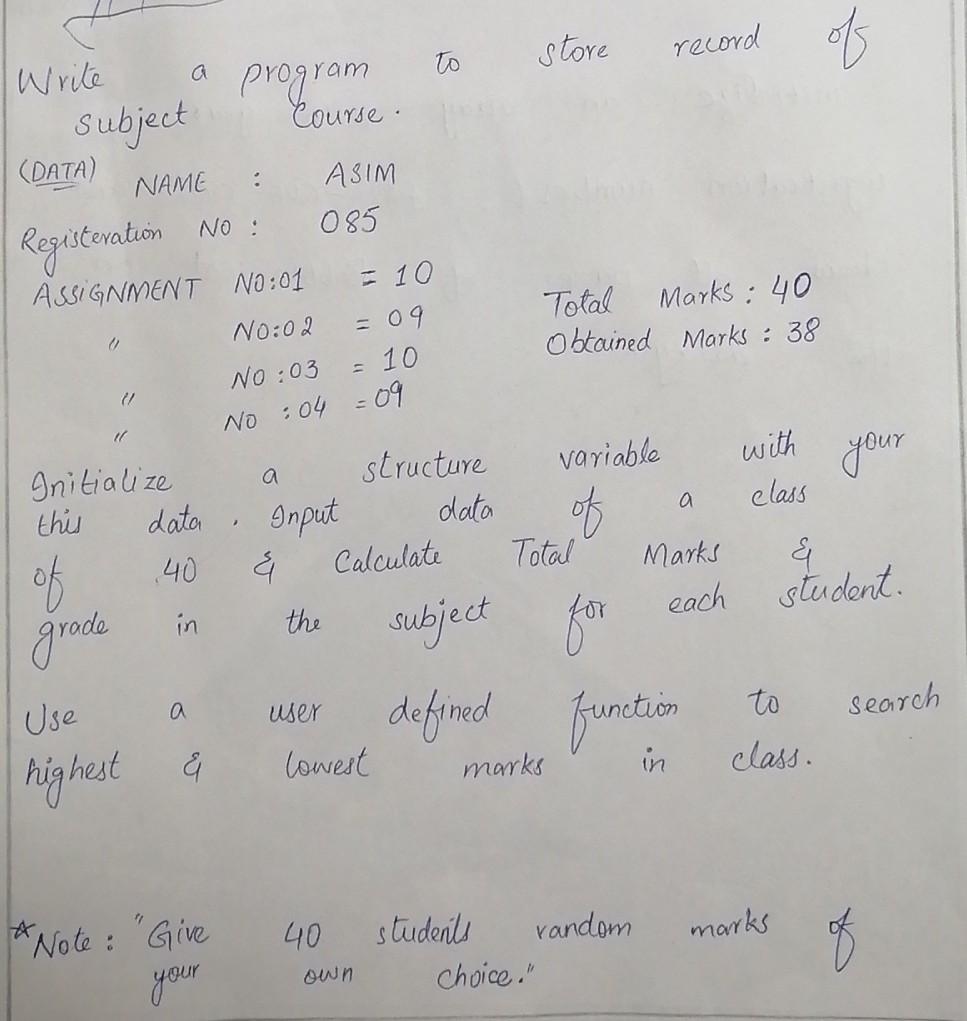 Write a program to store record of
subject Course.
(DATA) NAME : ASIM
Registeration No : 085
ASSIGNMENT NO:01 = 10
" NO:02 = 09
" NO:03 = 10
" NO:04 = 09
Total Marks : 40
Obtained Marks : 38
Initialize a structure variable with your
this data. Input data of a class
of 40 & Calculate Total Marks &
grade in the subject for each student.
Use a user defined function to search
highest & lowest marks in class.
*Note : "Give 40 students random marks of
your own choice."